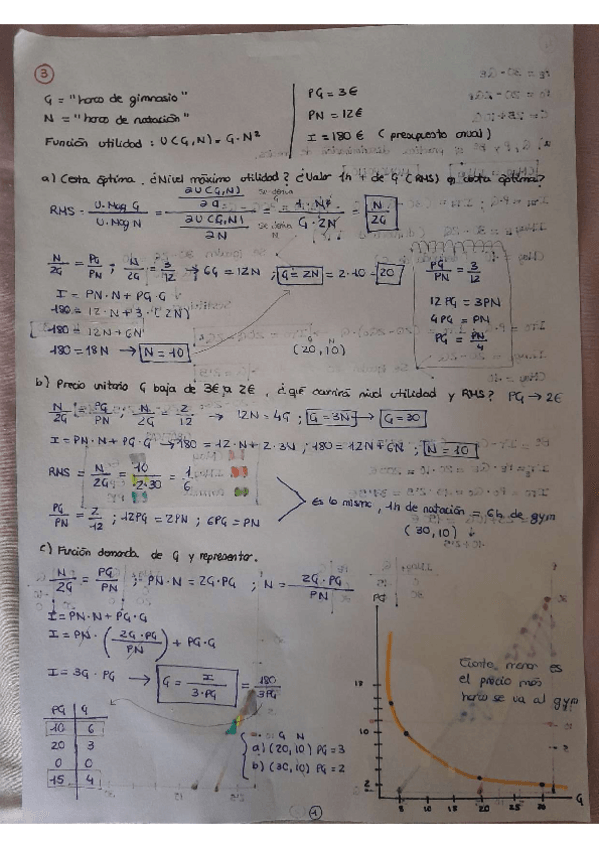 3
G = "horas de gimnasio"
N = "horas de natación"
Función utilidad : U(G,N) = G·N²
PG = 3€
PN = 12€
I = 180€ (presupuesto anual)
a) Cesta óptima. ¿Nivel máximo utilidad? ¿Valor 1h + de G (RMS) en cesta óptima?
RMS = U.Mag G / U.Mag N = ∂U(G,N)/∂G / ∂U(G,N)/∂N = 1·N² / G·2N = N/2G
Se deriva G
Se deriva N
N/2G = PG/PN ; N/2G = 3/12 → 6G = 12N ; G = 2N = 2·10 = 20
I = PN·N + PG·G
180 = 12·N + 3·(2N)
180 = 12N + 6N
180 = 18N → N = 10
G N
(20,10)
PG/PN = 3/12
12PG = 3PN
4PG = PN
PG = PN/4
b) Precio unitario G baja de 3€ a 2€, ¿qué ocurrirá nivel utilidad y RMS? PG → 2€
N/2G = PG/PN ; N/2G = 2/12 → 12N = 4G ; G = 3N → G = 30
I = PN·N + PG·G → 180 = 12·N + 2·3N ; 180 = 12N + 6N ; N = 10
RMS = N/2G = 10/2·30 = 1/6
PG/PN = 2/12 ; 12PG = 2PN ; 6PG = PN
Es lo mismo, 1h de natación = 6h de gym
(30,10) ↓
c) Función demanda de G y representar.
N/2G = PG/PN ; PN·N = 2G·PG ; N = 2G·PG/PN
I = PN·N + PG·G
I = PN·(2G·PG/PN) + PG·G
I = 3G·PG → G = I/3·PG = 180/3PG
PG G
10 6
20 3
0 0
15 4
G N
a) (20,10) PG = 3
b) (30,10) PG = 2
PG
Cuanto menor es
el precio más
horas se va al gym
2
5 10 15 20 25 30
G
1